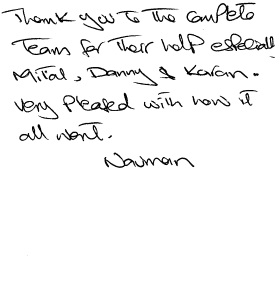 Thank you to the complete
Team for their help especially
Mital, Danny & Karan.
Very pleased with how it
all went.
Nauman